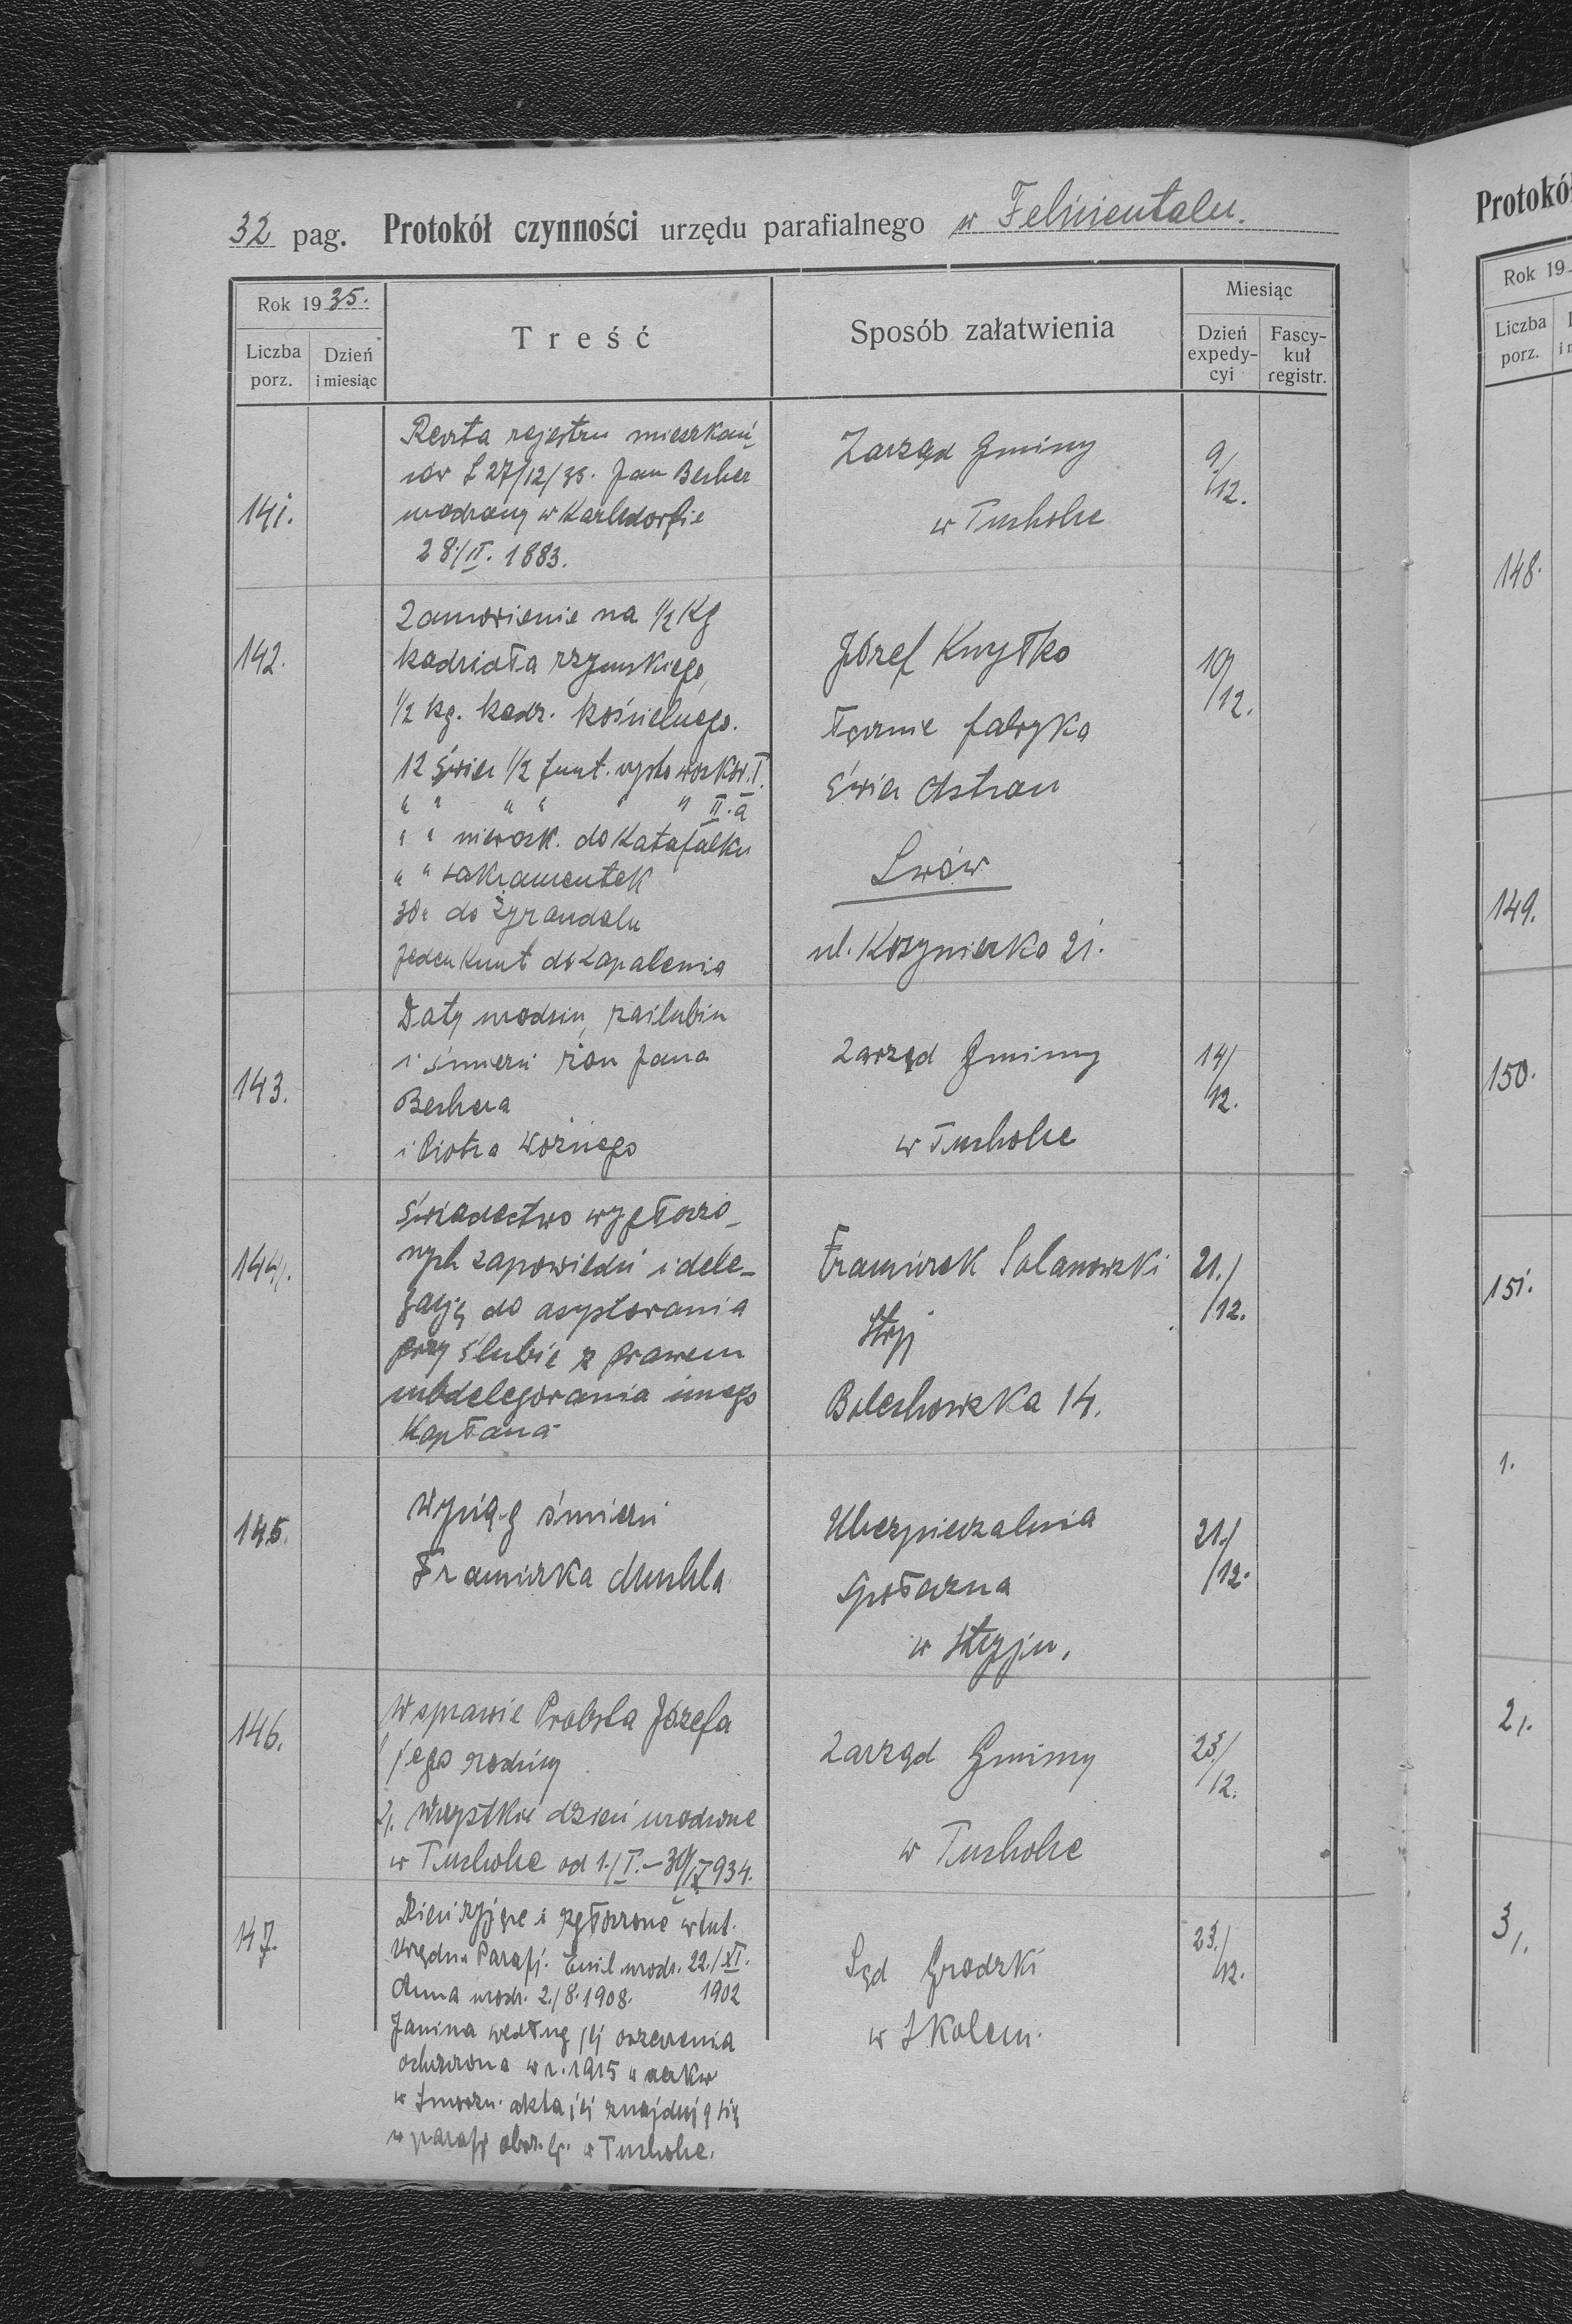 32 pag. Protokół czynności urzędu parafialnego w Felizientalu.
Rok 1935.
Liczba porz.
Dzień i miesiąc
Treść
Sposób załatwienia
Miesiąc
Dzień expedy-cyi
Fascy-kuł registr.
141.
rejestru mieszkań
ców L 27/12/35. Jan Becher
urodzony w Karlsdorfie
28./II. 1883.
Zarząd Gminy
w Tucholce
9/12.
142.
Zamówienie na 1/2 Kg
kadzidła rzymskiego,
1/2 kg. kadz. kościelnego.
12 świec 1/2 funt. woskow. I.
" " " " " " II. a
" " niewosk. do Katafalku
" " sakramentek
30 " do żyrandolu
jeden funt do zapalenia
Józef Knytko
fabryka
Świec
Lwów
ul. 21.
10/12.
143.
Daty urodzin, zaślubin
i śmierci żon Jana
Bechera
i Piotra Woźnego
Zarząd Gminy
w Tucholce
14/12.
144.
Świadectwo wygłoszo-
nych zapowiedzi i dele-
gację do asystowania
przy ślubie z prawem
subdelegowania innego
Kapłana
Franciszek Solanowski
Stryj
Bolechowska 14.
21./12.
145.
Wyciąg śmierci
Franciszka
Ubezpieczalnia
Społeczna
w Stryju.
21./12.
146.
W sprawie Probsta Józefa
jego rodziny
2). Wszystkie dzieci urodzone
w Tucholce od 1./I. – 30/ 934.
Zarząd Gminy
w Tucholce
23./12.
147.
Dzieci żyjące i zgłoszone w tut.
Urzędzie Parafj. Emil urodz. 22./XI.
1902
Anna urodz. 2./8. 1908.
Janina według jej orzeczenia
ochrzczona w r. 1915 w cerkw
w akta jej znajdują się
w parafji obrz. w Tucholce.
Sąd Grodzki
w Skolem.
23./12.
Protokół
Rok 19
Liczba porz.
148.
149.
150.
151.
1.
2.
3.